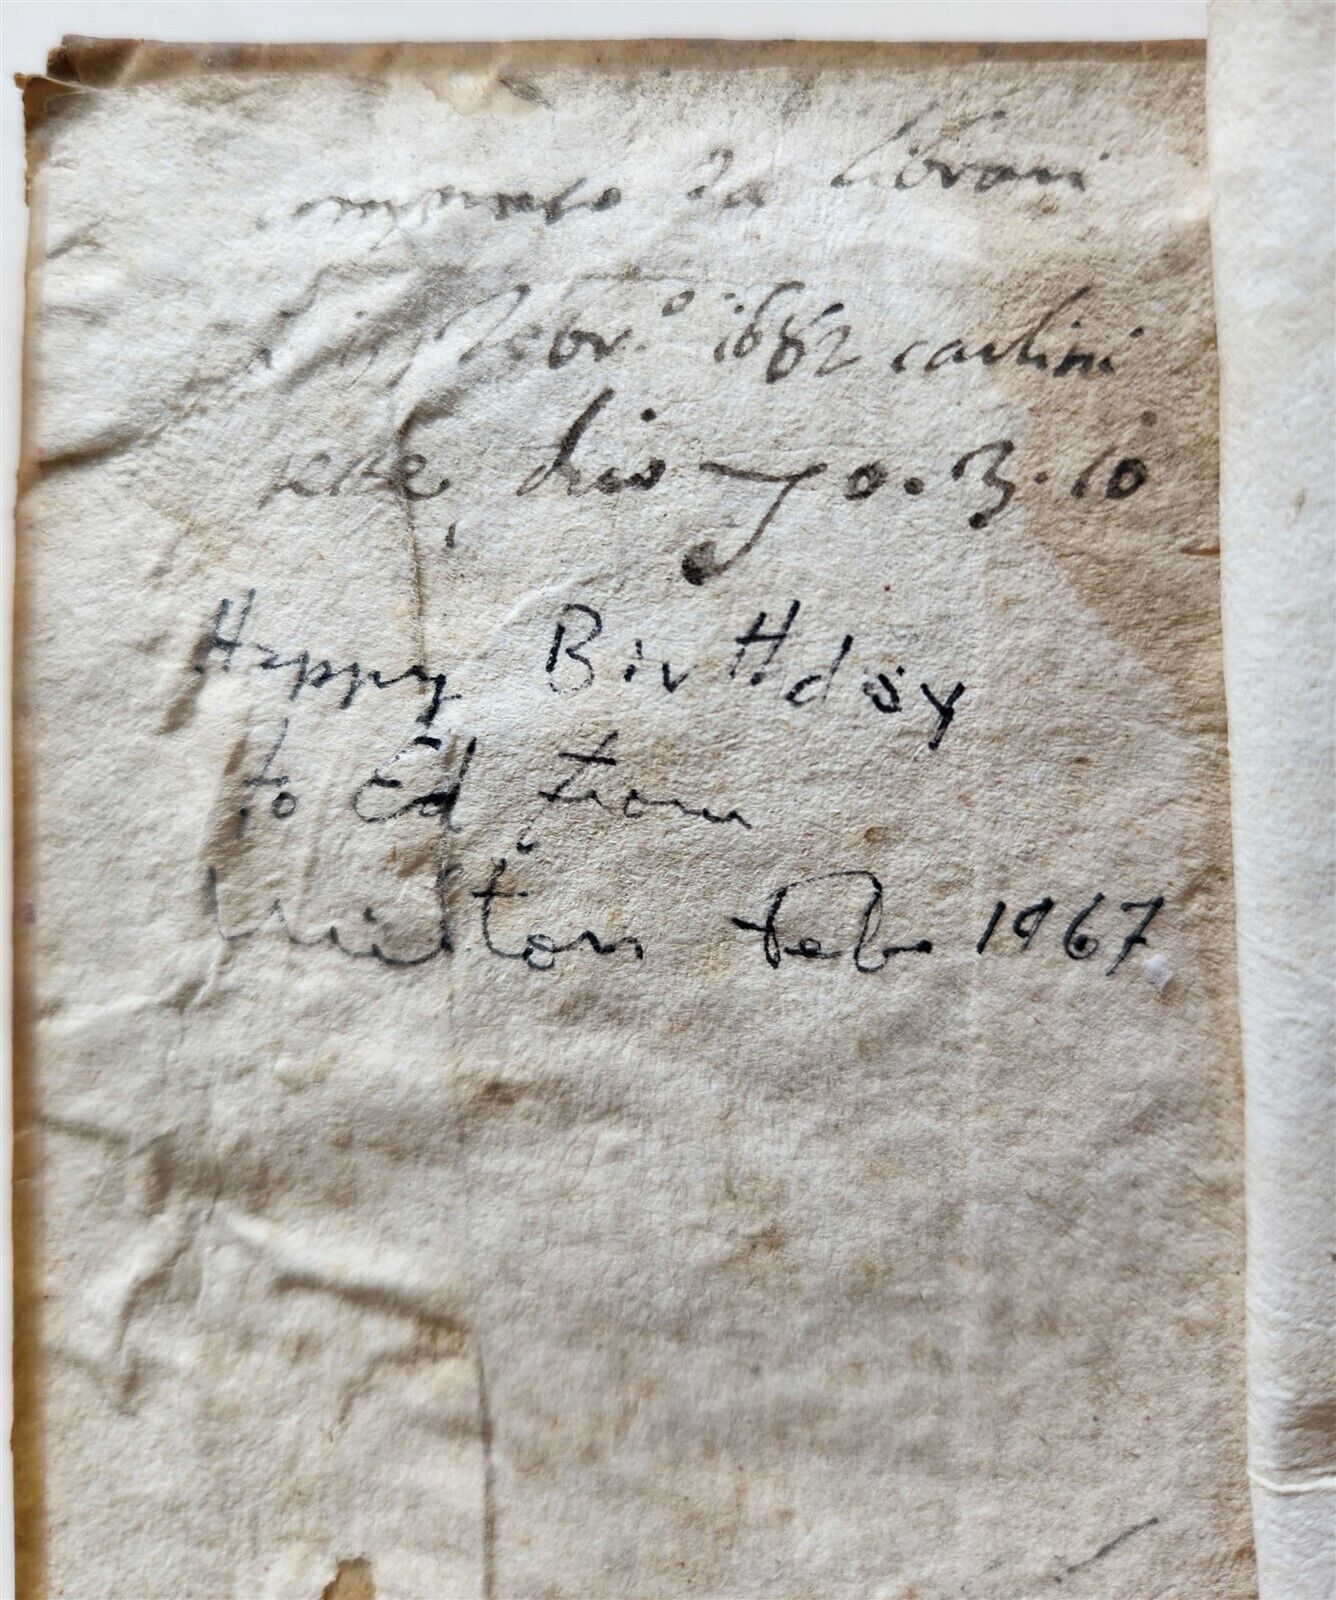 comprato da librari
Febr.o 1682 carlini
sette, dico 70.3.10
Happy Birthday
to Ed from
Milton Feb 1967